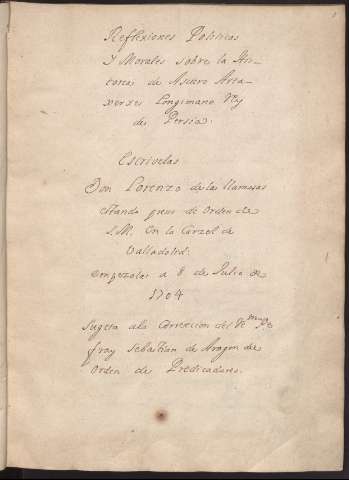 Reflexiones Politicas
Y Morales sobre la His-
toria de Asuero Arta-
xerxes Longimano Rey
de Persia.
Escrivelas
Don Lorenzo de las Llamosas
estando preso de Orden de
S.M. En la Carzel de
Valladolid.
empezolas a 8 de Julio de
1704
Sugeta a la Correccion del Rmo Pe
fray Sebastian de Aragon de
Orden de Predicadores.